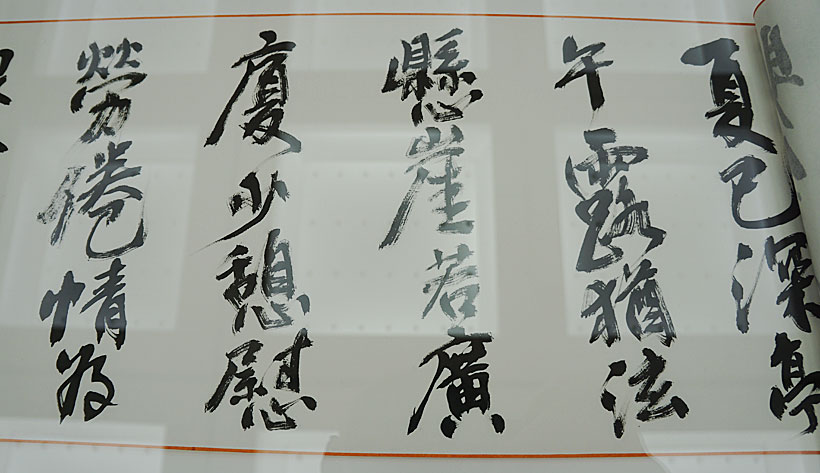 夏已深亭
午露猶泫
懸崖若廣
廈少憩慰
勞倦情為